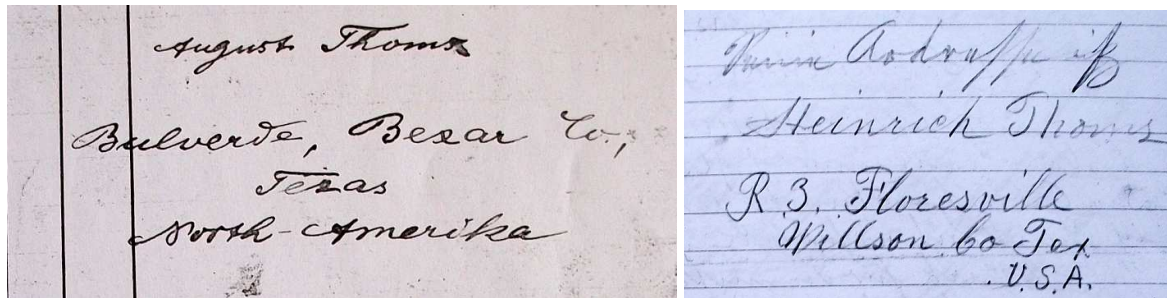 August Thoms
Bulverde, Bexar Co.,
Texas
North-Amerika
Meine Addresse ist
Heinrich Thoms
R. 3. Floresville
Willson Co Tex
U.S.A.